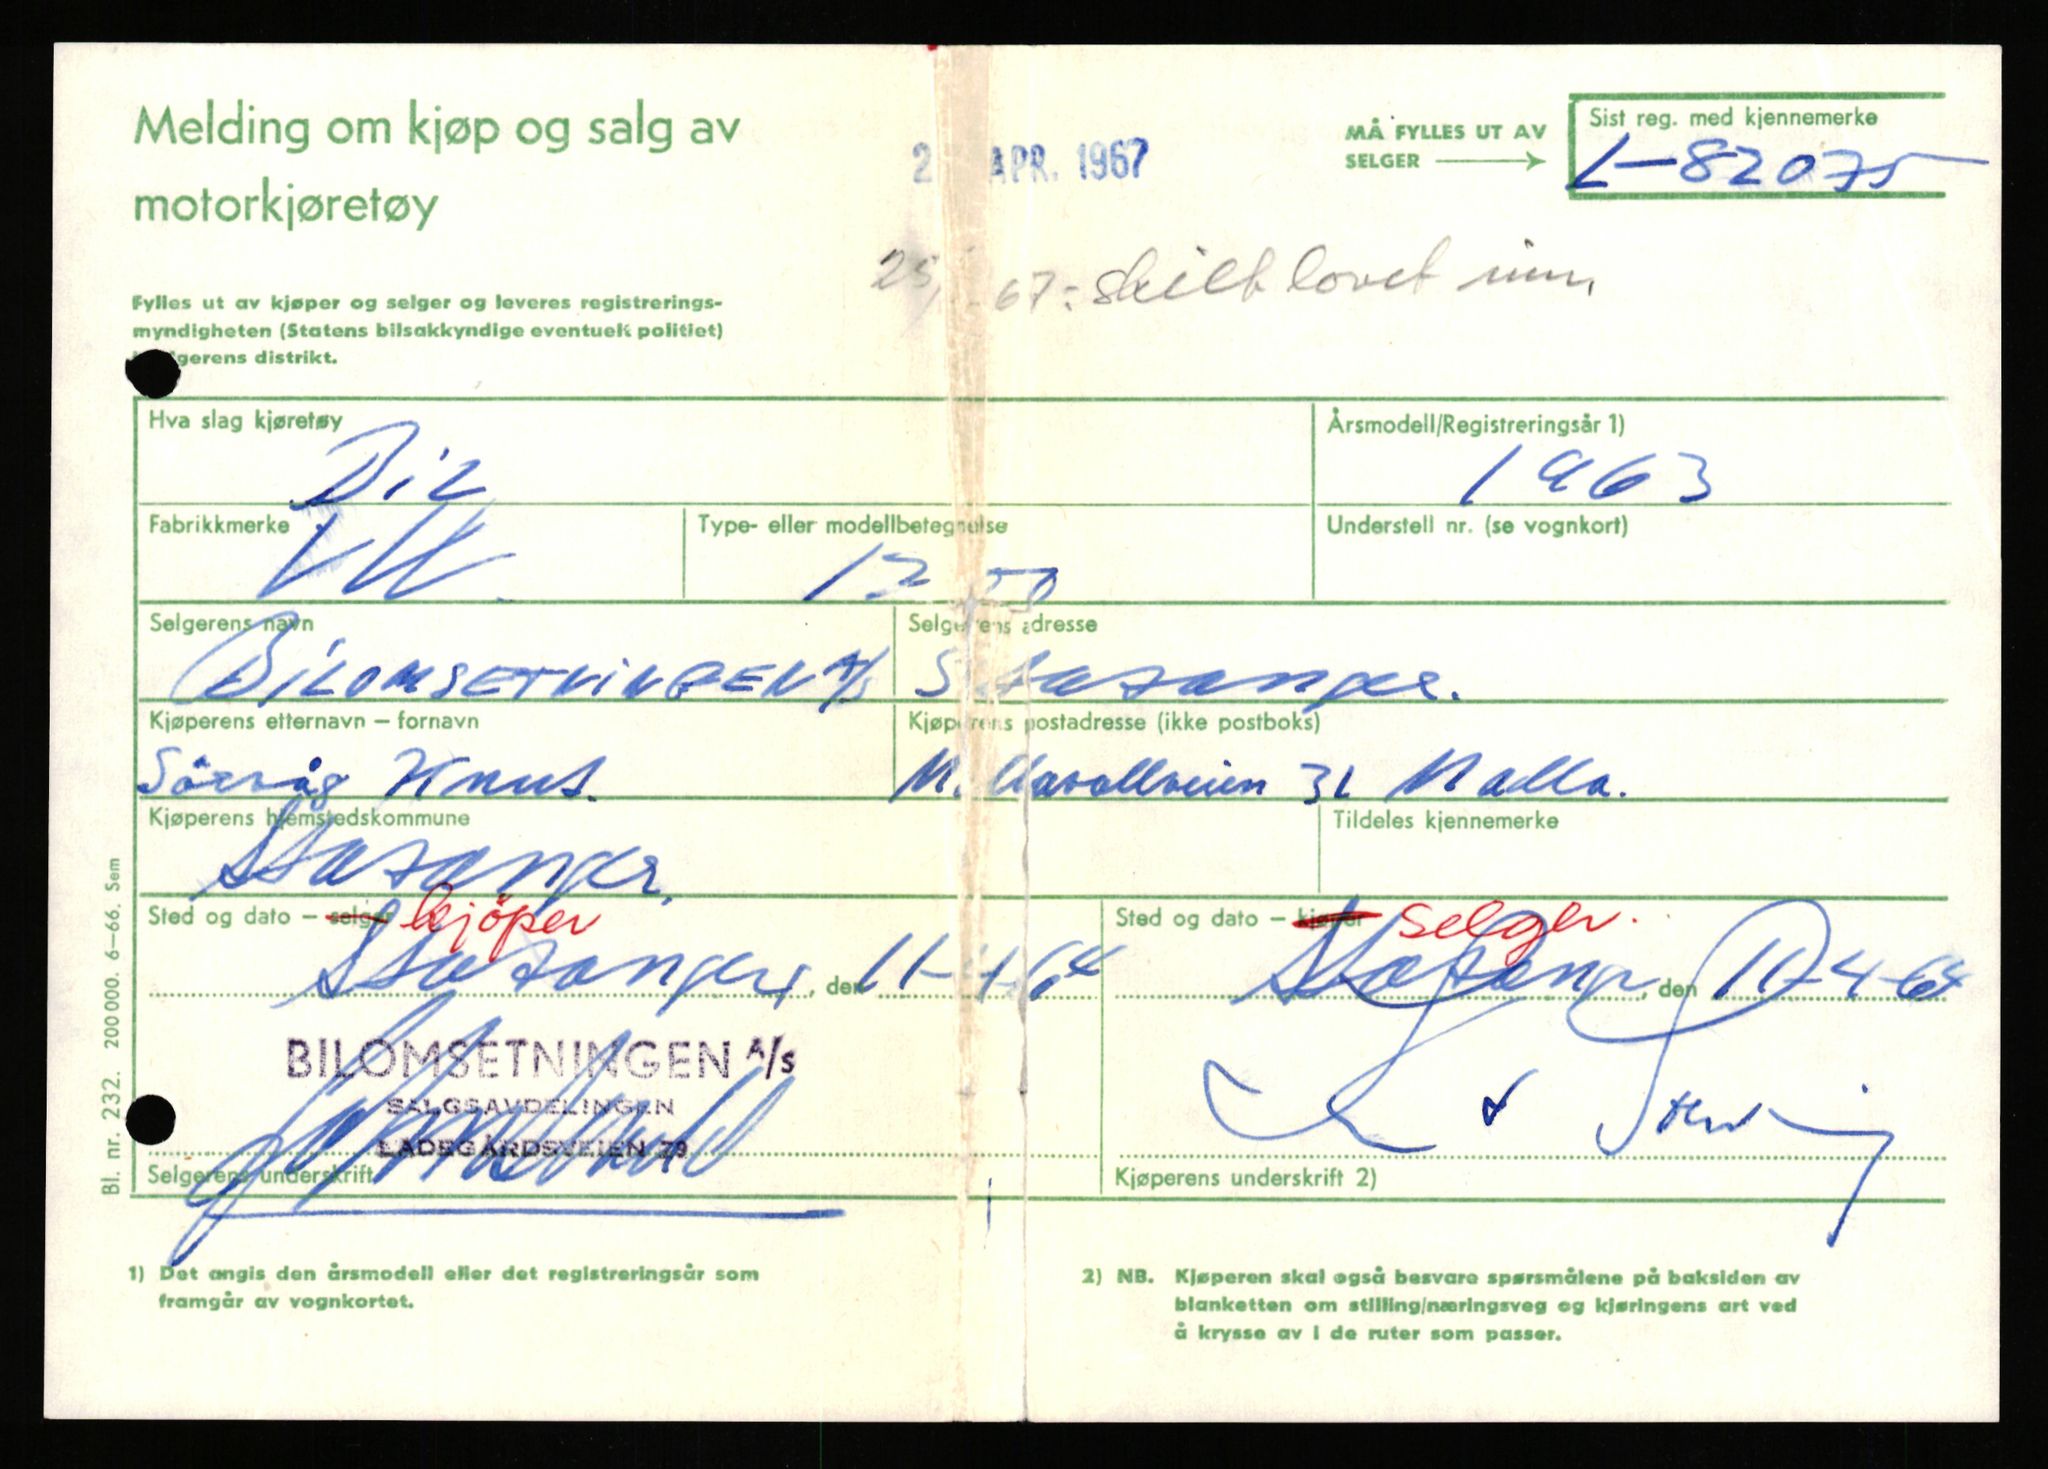 Melding om kjøp og salg av
motorkjøretøy
APR. 1967
MÅ FYLLES UT AV
SELGER
Sist reg. med kjennemerke
L-82075
25 67: skilt lovet inn.
Fylles ut av kjøper og selger og leveres registrerings-
myndigheten (Statens bilsakkyndige eventuelt politiet)
gerens distrikt.
Hva slag kjøretøy
Bil
Årsmodell/Registreringsår 1)
1963
Fabrikkmerke
VW.
Type- eller modellbetegnelse
Understell nr. (se vognkort)
Selgerens navn
BILOMSETNINGEN A/S
Selgerens adresse
Stavanger.
Kjøperens etternavn – fornavn
Sörvåg Knut.
Kjøperens postadresse (ikke postboks)
31 Madla.
Kjøperens hjemstedskommune
Stavanger.
Tildeles kjennemerke
Sted og dato – selger kjöper
Stavanger, den 11-4-64
Sted og dato – kjøper selger.
Stavanger, den 11-4-64
BILOMSETNINGEN A/S
SALGSAVDELINGEN
LADEGÅRDSVEIEN 79
Selgerens underskrift
Kjøperens underskrift 2)
1) Det angis den årsmodell eller det registreringsår som
framgår av vognkortet.
2) NB. Kjøperen skal også besvare spørsmålene på baksiden av
blanketten om stilling/næringsveg og kjøringens art ved
å krysse av i de ruter som passer.
Bl. nr. 232. 200 000. 6–66. Sem